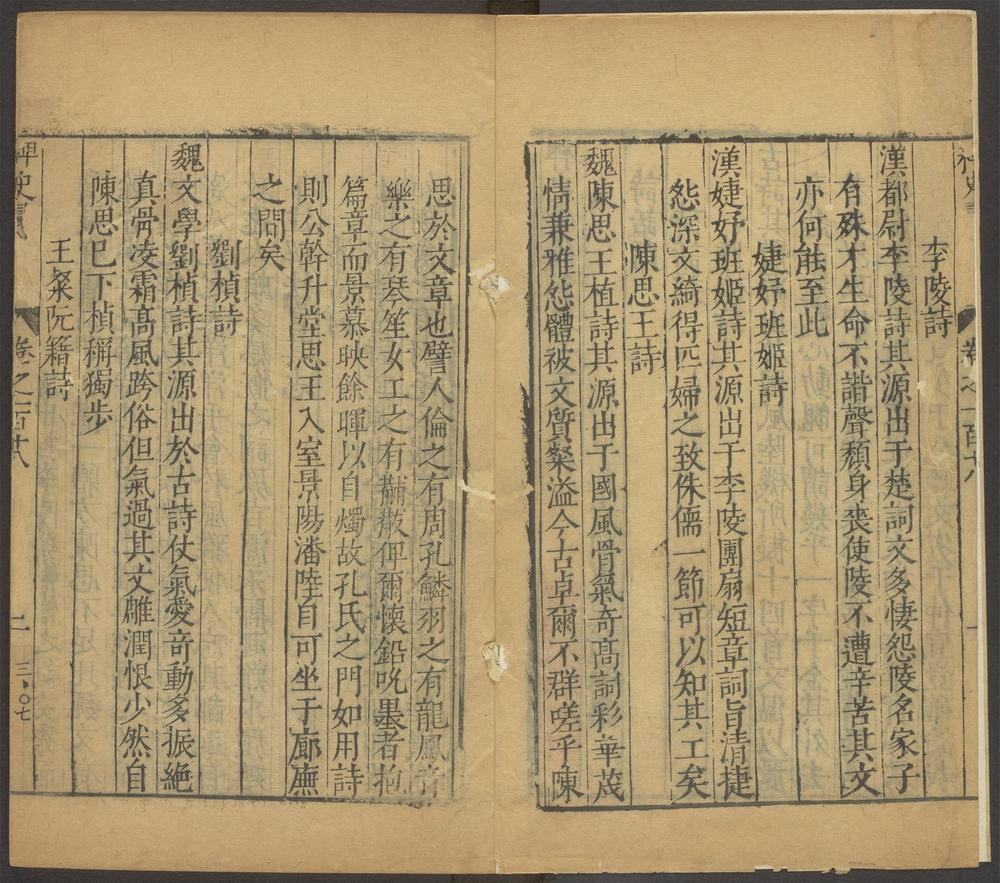 卷之一百十八
李陵詩
漢都尉李陵詩其源出于楚詞文多悽怨陵名家子
有殊才生命不諧聲頹身喪使陵不遭辛苦其文
亦何能至此
婕妤班姬詩
漢婕妤班姬詩其源出于李陵團扇短章詞旨清捷
怨深文綺得匹婦之致侏儒一節可以知其工矣
陳思王詩
魏陳思王植詩其源出于國風骨氣奇高詞彩華茂
情兼雅怨體被文質粲溢今古卓爾不群嗟乎陳
思於文章也譬人倫之有周孔鱗羽之有龍鳳音
樂之有琴笙女工之有黼黻俾爾懷鉛吮墨者抱
篇章而景慕映餘暉以自燭故孔氏之門如用詩
則公幹升堂思王入室景陽潘陸自可坐于廊廡
之間矣
劉楨詩
魏文學劉楨詩其源出於古詩仗氣愛奇動多振絕
真骨凌霜高風跨俗但氣過其文雕潤恨少然自
陳思已下楨稱獨步
王粲阮籍詩
卷之一百十八 二 三〇七